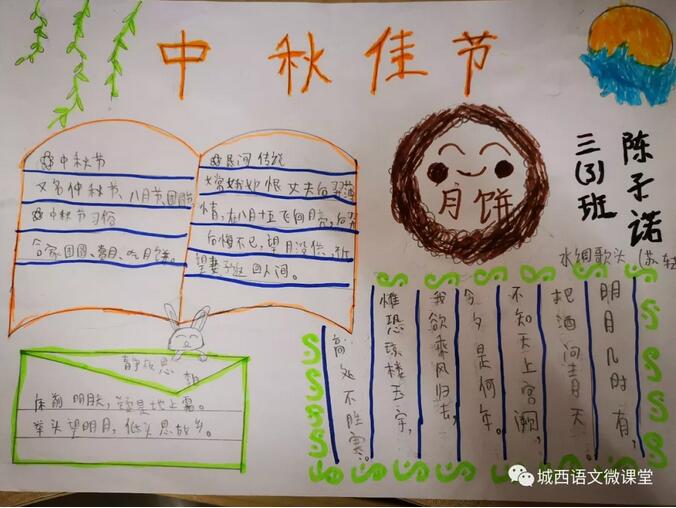 中秋佳节
三(3)班
陈子诺
中秋节
又名仲秋节、八月节、团圆
中秋节习俗
合家团圆、赏月、吃月饼。
民间传说
嫦娥妒恨丈夫后羿薄
情,在八月十五飞向月亮,后羿
后悔不已,望月没供,祈
望妻子返回人间。
月饼
静夜思
床前明月光,疑是地上霜。
举头望明月,低头思故乡。
水调歌头(苏轼
明月几时有,
把酒问青天
不知天上宫阙,
今夕是何年。
我欲乘风归去,
惟恐琼楼玉宇,
高处不胜寒。
城西语文微课堂